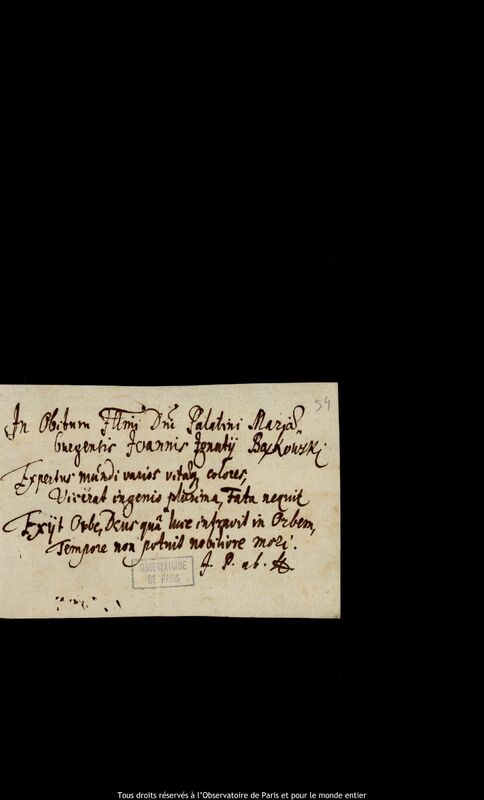 54
In Obitum Illmi Dni Palatini Mariæ
burgensis Joannis Ignatij Bąkowski
Expertus mundi varios vitæq colores,
Vicerat ingenio plurima, Fata nequit
Exijt Orbe, Deus quâ luce intravit in Orbem,
Tempore non potuit nobiliore mori.
J. P. ab. H.
OBSERVATOIRE
DE PARIS
Tous droits réservés à l'Observatoire de Paris et pour le monde entier